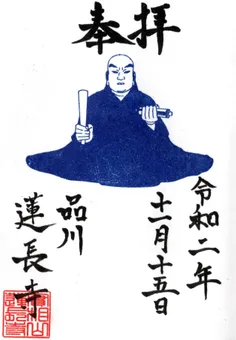 奉拝
令和二年
十一月十五日
品川
蓮長寺